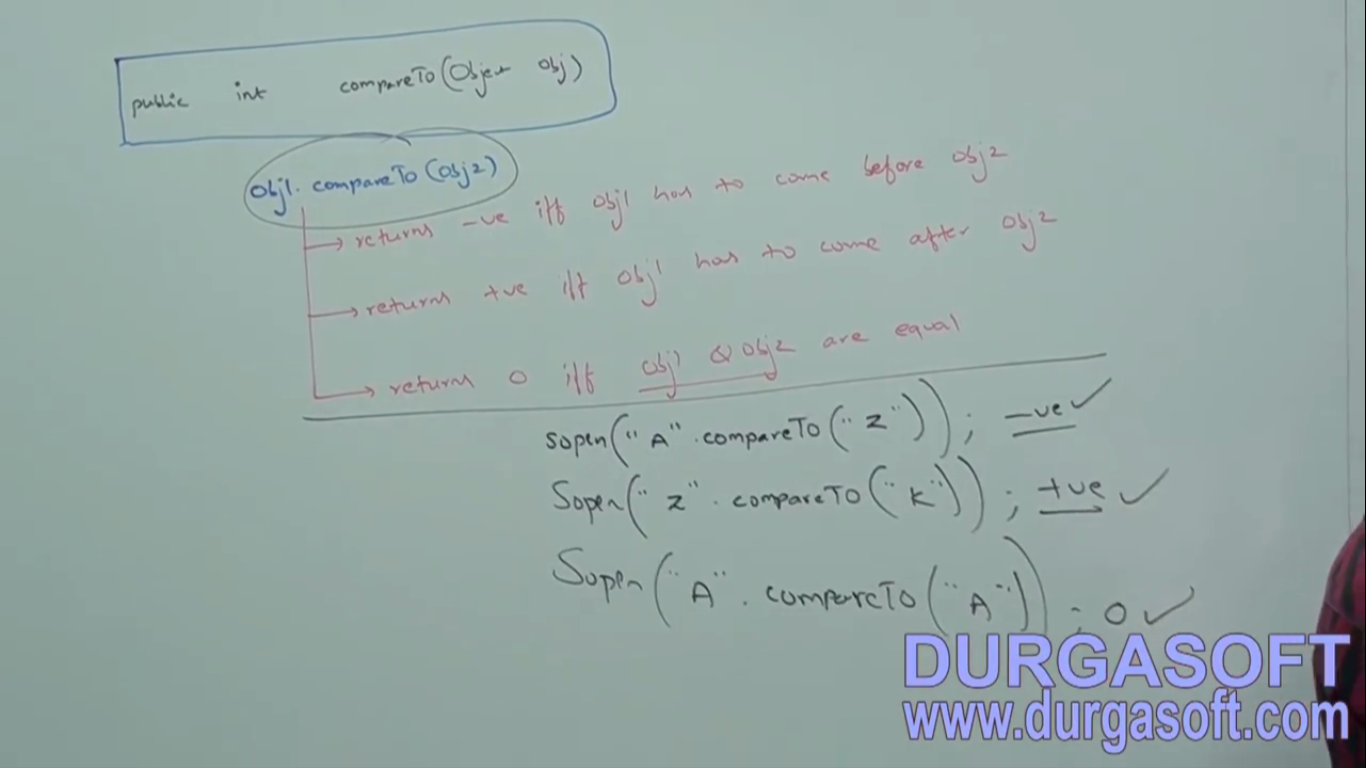 public int compareTo(Object obj)
obj1.compareTo(obj2)
returns -ve iff obj1 has to come before obj2
returns +ve iff obj1 has to come after obj2
returns 0 iff obj1 & obj2 are equal
sopln("A".compareTo("Z")); -ve ✓
Sopln("Z".compareTo("K")); +ve ✓
Sopln("A".compareTo("A")); 0 ✓
DURGASOFT
www.durgasoft.com